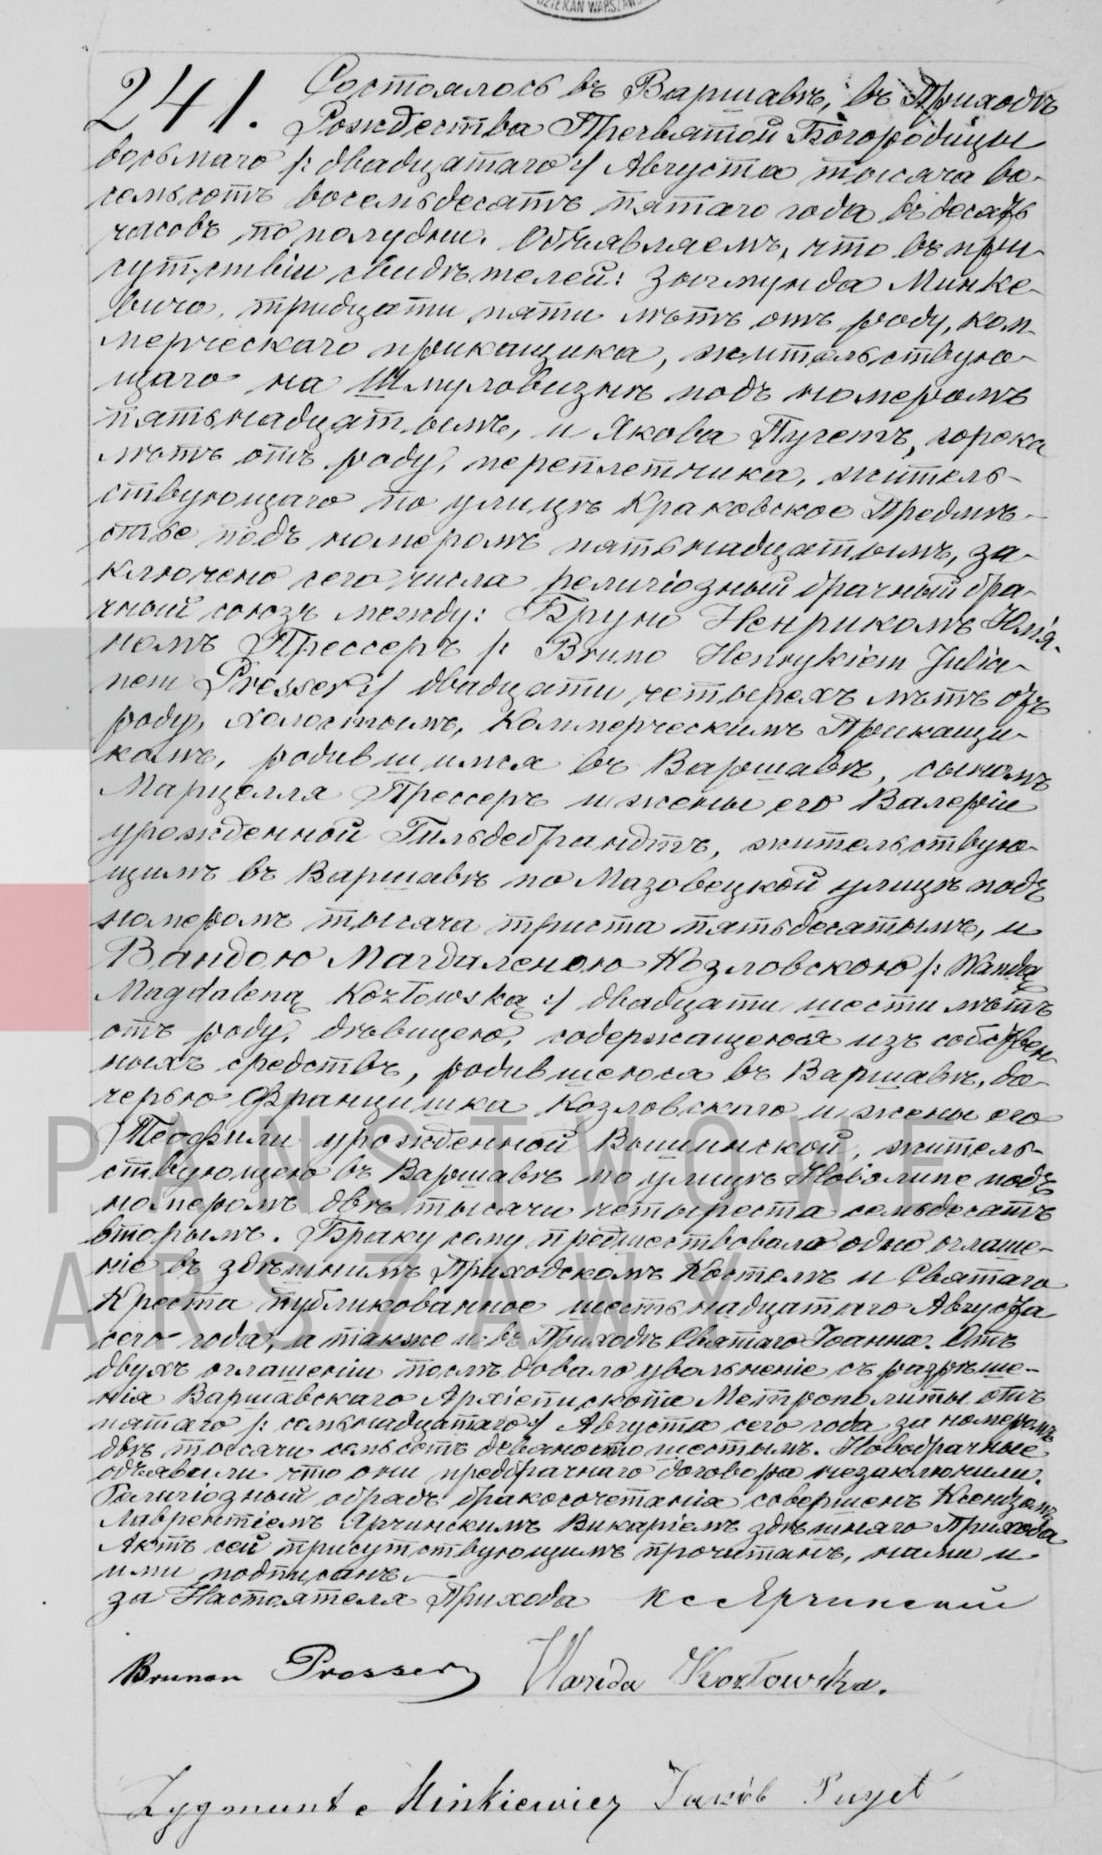 DZIEKAN WARSZAWS
241. Состоялось въ Варшавѣ, въ Приходѣ
Рождества Пресвятой Богородицы
восьмаго /: двадцатаго :/ Августа тысяча во-
семьсотъ восемьдесятъ пятаго года въ десять
часовъ по полудни. Объявляемъ, что въ при-
сутствіи свидѣтелей: Зыгмунда Минке-
вича, тридцати пяти лѣтъ отъ роду, ком-
мерческаго прикащика, жительствую-
щаго на Шмуловизнѣ подъ номеромъ
пятьнадцатымъ, и Якова Пугетъ, сорока
лѣтъ отъ роду, переплетчика, житель-
ствующаго по улицѣ Краковское Предмѣ-
стье подъ номеромъ пятьнадцатымъ, за-
ключено сего числа религіозный брачный бра-
чный союзъ между: Бруно Генрикомъ Юлія-
номъ Прессеръ /: Bruno Henrykiem Julia-
nem Presser :/ двадцати четырехъ лѣтъ отъ
роду, холостымъ, Коммерческимъ Прикащи-
комъ, родившимся въ Варшавѣ, сыномъ
Марцелля Прессеръ и жены его Валеріи
урожденной Гильдебрандтъ, жительствую-
щимъ въ Варшавѣ по Мазовецкой улицѣ подъ
номеромъ тысяча триста пятьдесятымъ, и
Вандою Магдаленою Козловскою /: Wandą
Magdaleną Kozłowską :/ двадцати шести лѣтъ
отъ роду, дѣвицею, содержащеюся изъ собствен-
ныхъ средствъ, родившеюся въ Варшавѣ, до-
черью Францишка Козловскаго и жены его
Теофили урожденной Вышинской, житель-
ствующею въ Варшавѣ по улицѣ Новолипе подъ
номеромъ двѣ тысячи четыреста семьдесятъ
вторымъ. Браку сему предшествовало одно оглаше-
ніе въ здѣшнимъ Приходскомъ Костелѣ и Святаго
Креста публикованное шестьнадцатаго Августа
сего года, а также и въ Приходѣ Святаго Іоанна. Отъ
двухъ оглашеніи послѣдовало увольненіе съ разрѣше-
нія Варшавскаго Архіепископа Метрополиты отъ
пятаго /: семьнадцатаго :/ Августа сего года за номеромъ
двѣ тысячи семьсотъ девяносто шестымъ. Новобрачные
объявили что они предбрачнаго договора незаключили.
Религіозный обрядъ бракосочетанія совершенъ Ксендзомъ
Лаврентіемъ Ярчинскимъ Викаріемъ здѣшняго Прихода
Актъ сей присутствующимъ прочитанъ, нами и
ими подписанъ.
за Настоятеля Прихода Кс Ярчинскій
Brunon Presser Wanda Kozłowska.
Zygmunt Minkiewicz Jakób Puget
PAŃSTWOWE
ARSZAWY